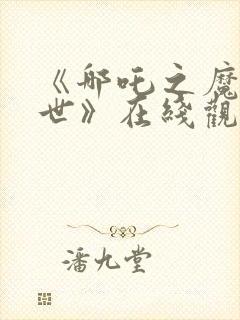 《哪吒之魔
世》在綫觀
潘九堂